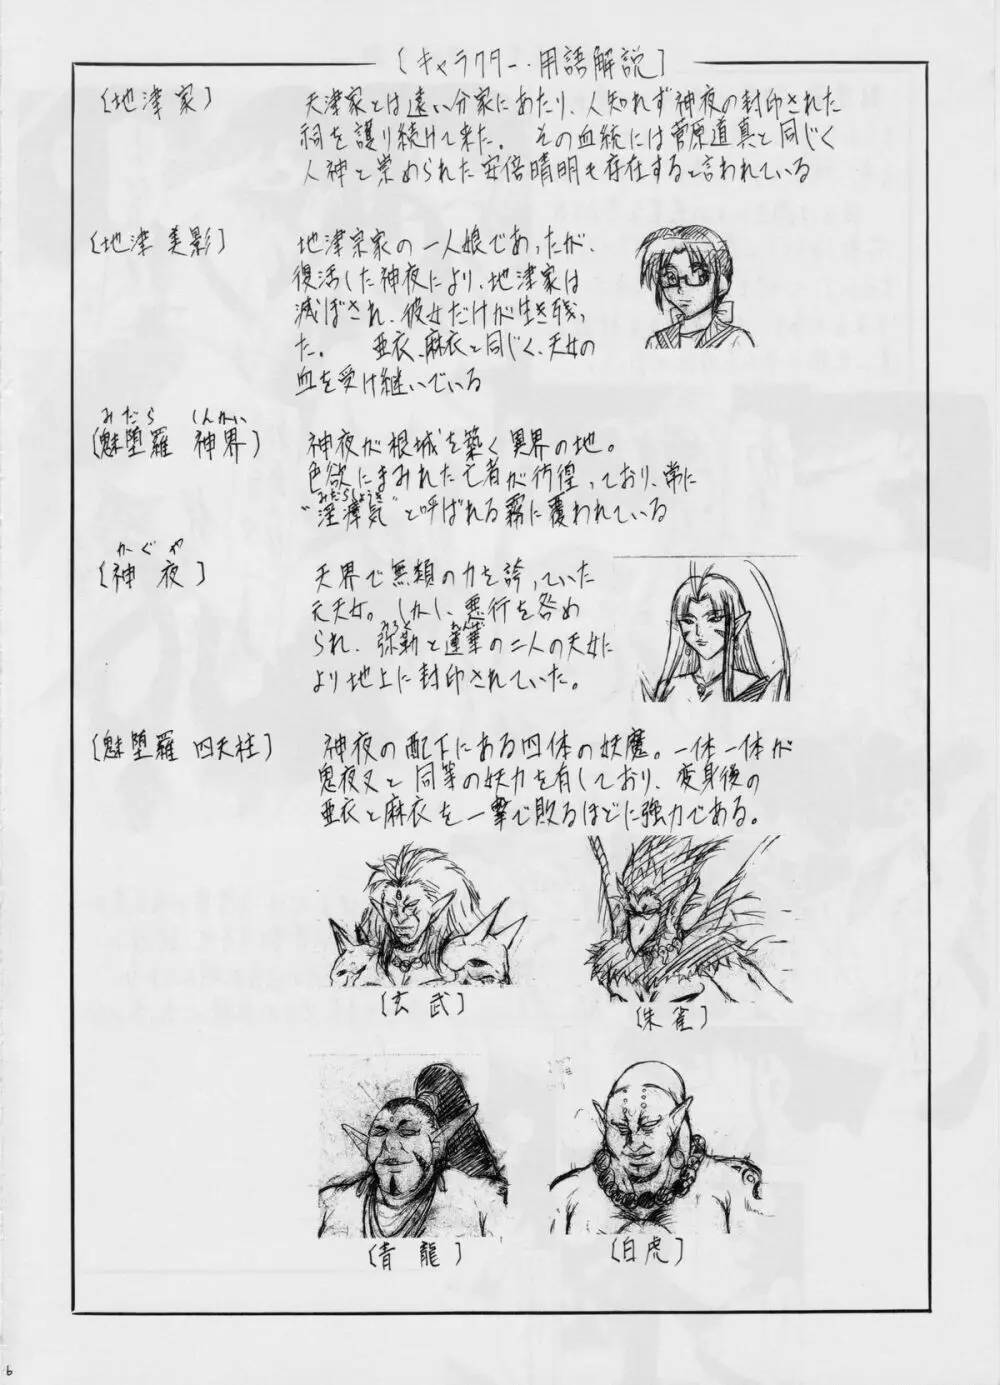 〔キャラクター・用語解説〕
〔地津家〕
天津家とは遠い分家にあたり、人知れず神夜の封印された
祠を護り続けて来た。 その血統には菅原道真と同じく
人神と崇められた安倍晴明も存在すると言われている
〔地津 美影〕
地津宗家の一人娘であったが、
復活した神夜により、地津家は
滅ぼされ、彼女だけが生き残っ
た。 亜衣、麻衣と同じく、天女の
血を受け継いでいる
みだら しんかい
〔魅堕羅 神界〕
神夜が根城を築く異界の地。
色欲にまみれた亡者が彷徨っており、常に
みだらしょうき
“淫瘴気”と呼ばれる霧に覆われている
かぐや
〔神夜〕
天界で無類の力を誇っていた
元天女。しかし、悪行を咎め
みろく れんげ
られ、弥勒と蓮華の二人の天女に
より地上に封印されていた。
〔魅堕羅 四天柱〕
神夜の配下にある四体の妖魔。一体一体が
鬼夜叉と同等の妖力を有しており、変身後の
亜衣と麻衣を一撃で敗るほどに強力である。
〔玄武〕
〔朱雀〕
〔青龍〕
〔白虎〕
6